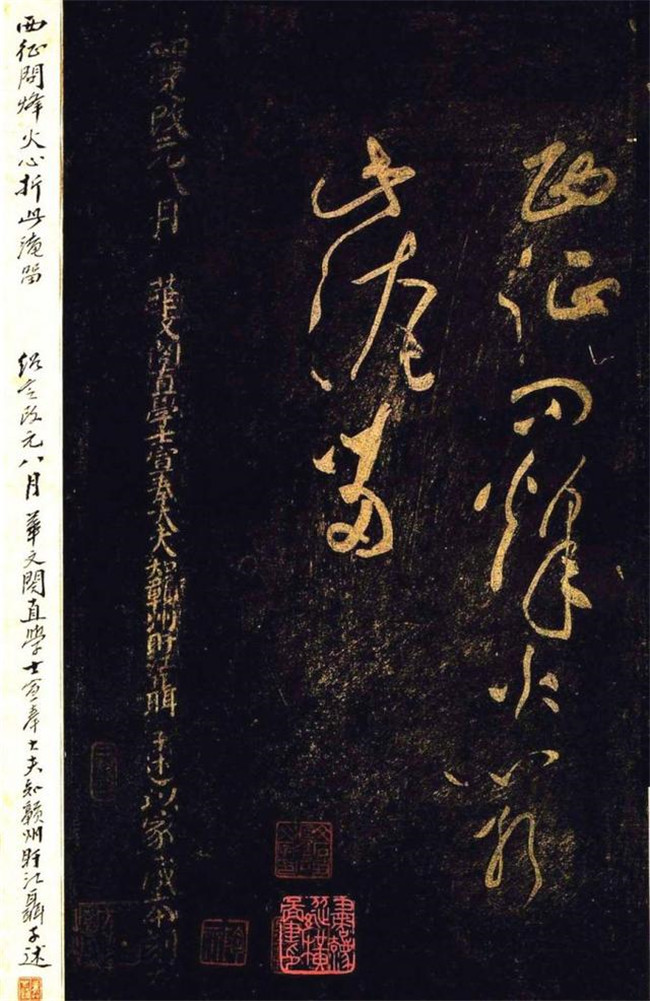 西征問烽火心折
此淹留
紹定改元八月 華文閣直學士宣奉大夫知贛州盱江聶子述以家藏本刻
西征問烽火心折此淹留 紹定改元八月華文閣直學士宣奉大夫知贛州盱江聶子述